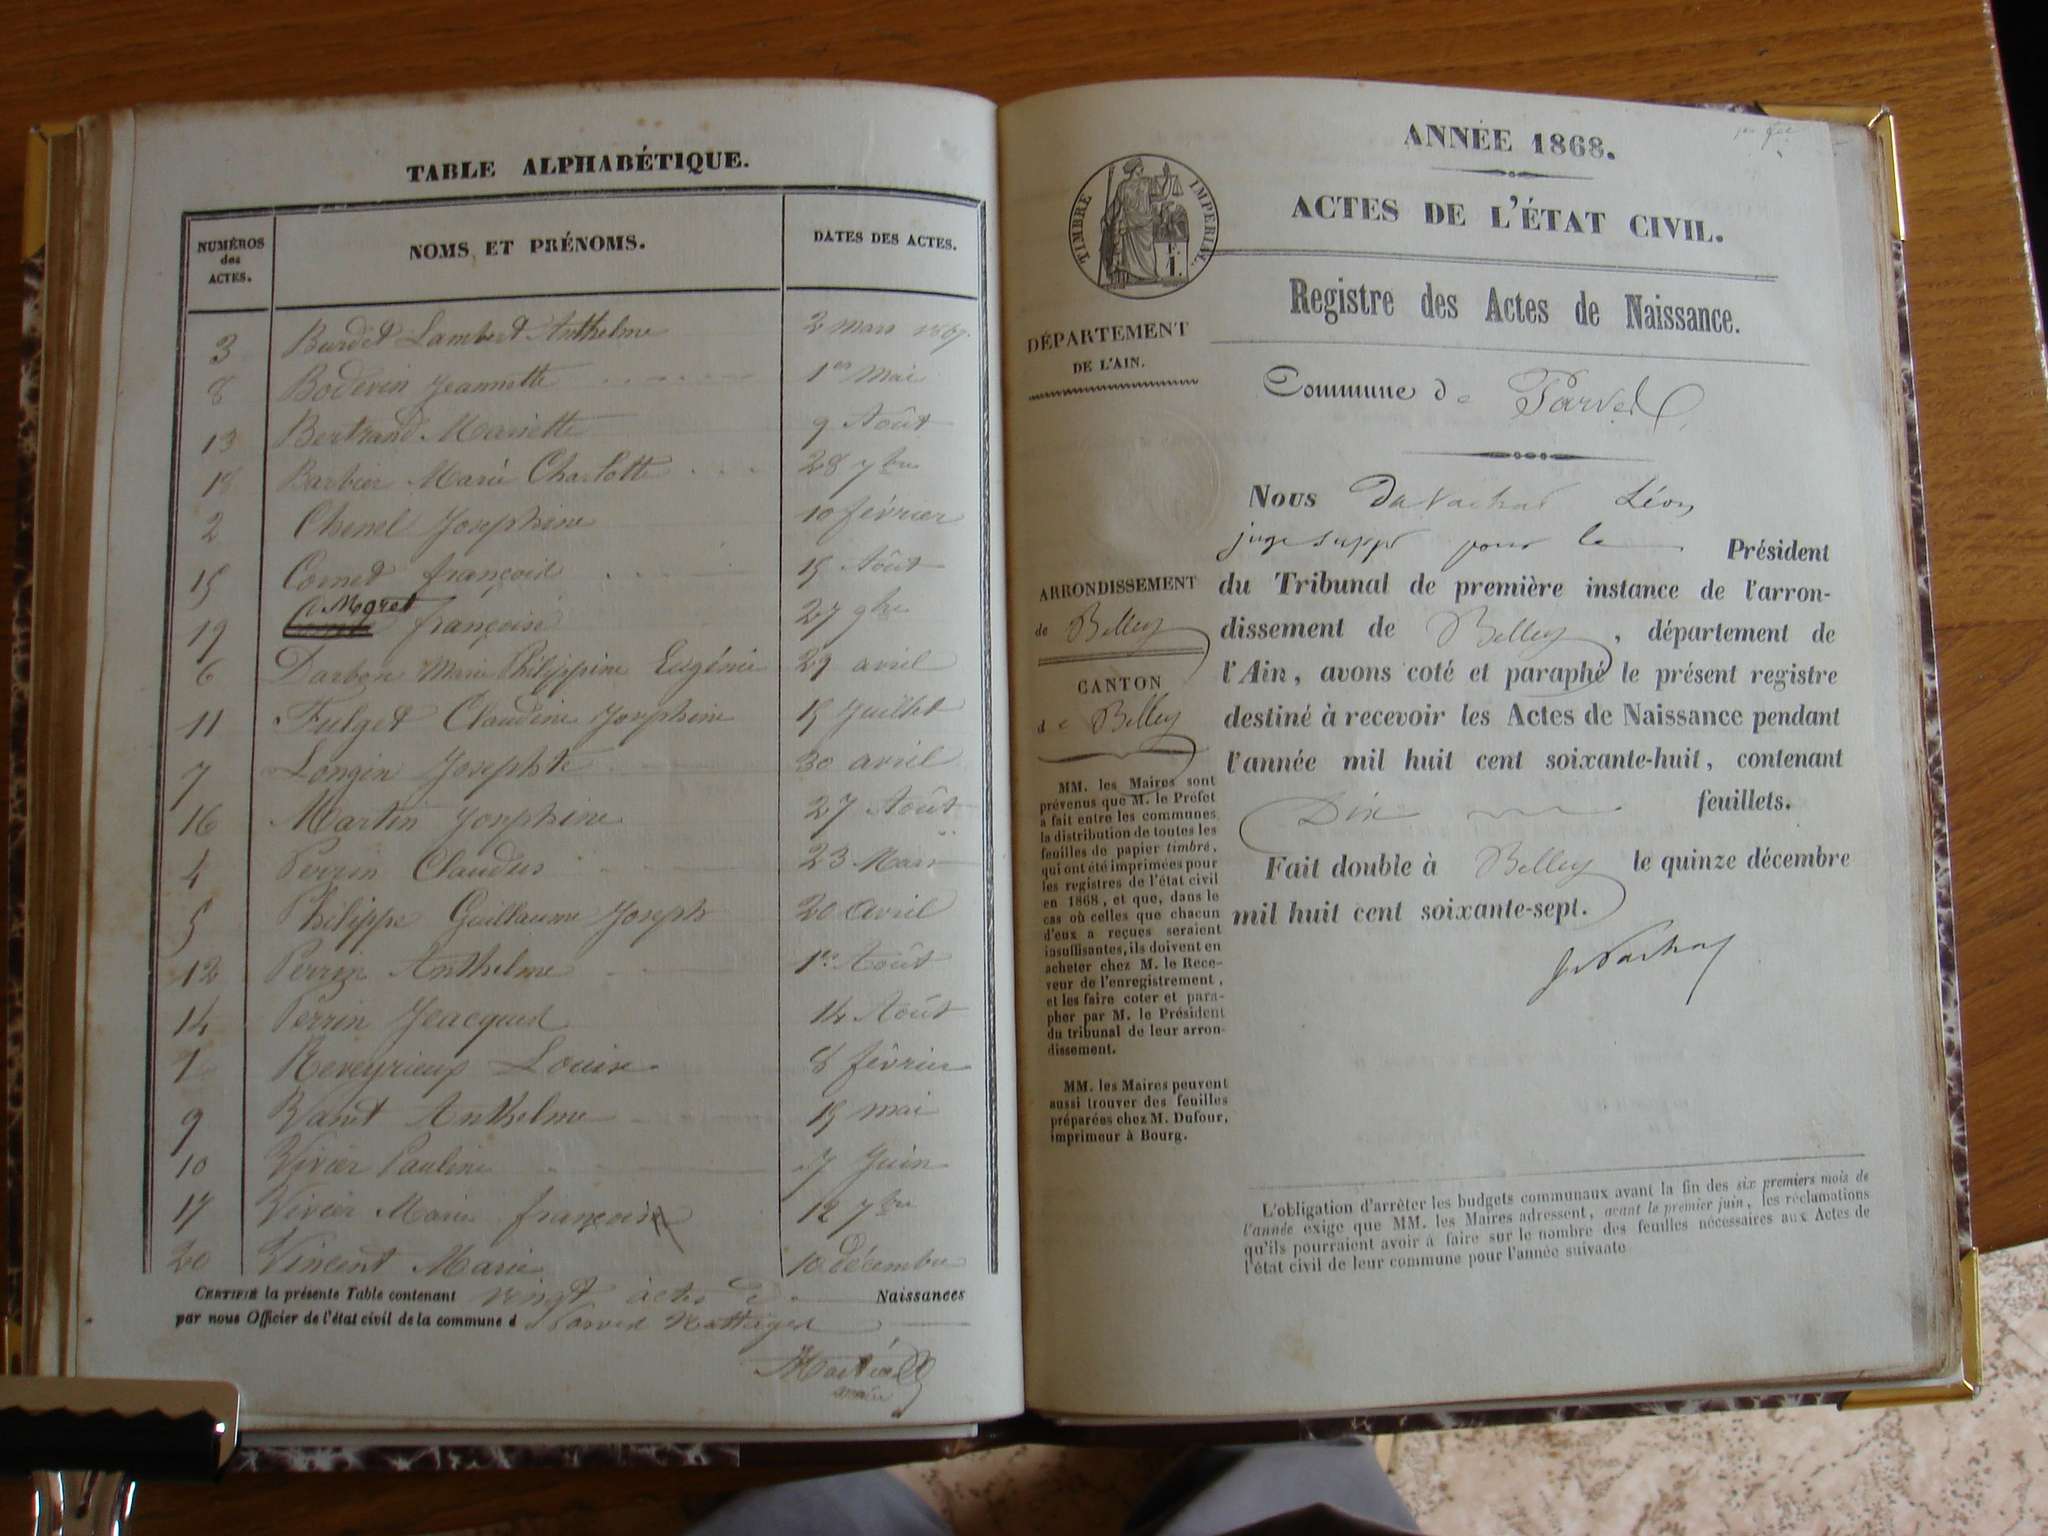 TABLE ALPHABÉTIQUE.
NUMÉROS des ACTES. NOMS ET PRÉNOMS. DATES DES ACTES.
3 Burdet Lambert Anthelme 2 mars 1867.
8 Bodevin Jeannette 1er Mai
13 Bertrand Mariette 9 Août
18 Barbier Marie Charlotte 28 7bre
2 Chenel Josephine 10 février
15 Cornet françois 15 Août
19 Moret françois 27 9bre
6 Darbon Marie Philippine Eugénie 29 avril
11 Fulget Claudine Josephine 15 Juillet
7 Longin Josephte 30 avril
16 Martin Josephine 27 Août
4 Perrin Claudius 23 Mars
5 Philippe Guillaume Joseph 20 Avril
12 Perrin Anthelme 1er Août
14 Perrin Jeacques 14 Août
1 Reveyrieux Louise 8 février
9 Anthelme 15 mai
10 Vivier Pauline 7 Juin
17 Vivier Marie françois 12 7bre
20 Vincent Marie 10 décembre
CERTIFIÉ la présente Table contenant vingt actes de Naissances
par nous Officier de l'état civil de la commune d Parves Nattages
maire
ANNÉE 1868.
ACTES DE L'ÉTAT CIVIL.
TIMBRE IMPÉRIAL.
Registre des Actes de Naissance.
DÉPARTEMENT
DE L'AIN.
Commune de Parves
Nous Léon
juge supp pour le Président
du Tribunal de première instance de l'arron-
dissement de Belley, département de
l'Ain, avons coté et paraphé le présent registre
destiné à recevoir les Actes de Naissance pendant
l'année mil huit cent soixante-huit, contenant
Dix feuillets.
Fait double à Belley le quinze décembre
mil huit cent soixante-sept.
ARRONDISSEMENT
de Belley
CANTON
de Belley
MM. les Maires sont
prévenus que M. le Préfet
a fait entre les communes
la distribution de toutes les
feuilles de papier timbré,
qui ont été imprimées pour
les registres de l'état civil
en 1868, et que, dans le
cas où celles que chacun
d'eux a reçues seraient
insuffisantes, ils doivent en
acheter chez M. le Rece-
veur de l'enregistrement,
et les faire coter et para-
pher par M. le Président
du tribunal de leur arron-
dissement.
MM. les Maires peuvent
aussi trouver des feuilles
préparées chez M. Dufour,
imprimeur à Bourg.
L'obligation d'arrêter les budgets communaux avant la fin des six premiers mois de
l'année exige que MM. les Maires adressent, avant le premier juin, les réclamations
qu'ils pourraient avoir à faire sur le nombre des feuilles nécessaires aux Actes de
l'état civil de leur commune pour l'année suivante